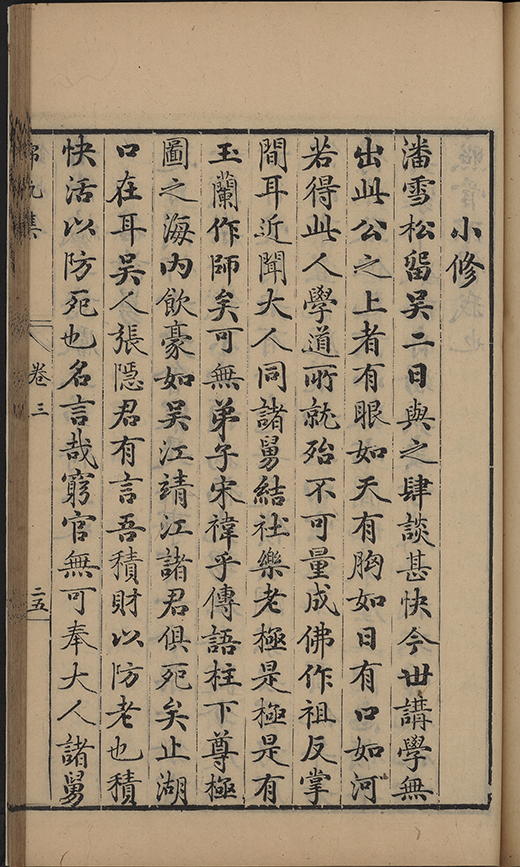 小修
潘雪松留吴二日與之肆談甚快今世講學無
出此公之上者有眼如天有胸如日有口如河
若得此人學道所就殆不可量成佛作祖反掌
間耳近聞大人同諸舅結社樂老極是極是有
玉蘭作師矣可無弟子宋禕乎傳語柱下尊極
圖之海内飲豪如吴江靖江諸君俱死矣止湖
口在耳吴人張隠君有言吾積財以防老也積
快活以防死也名言哉窮官無可奉大人諸舅
卷三
二五